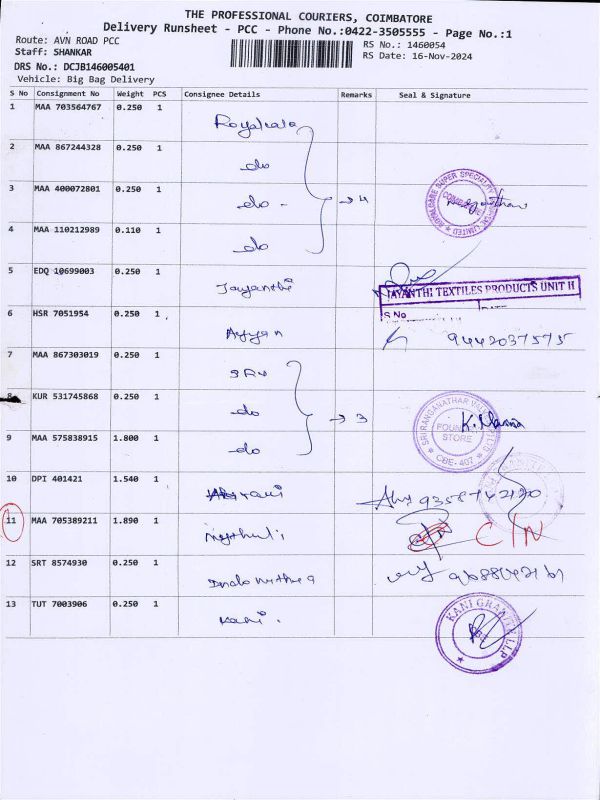 THE PROFESSIONAL COURIERS, COIMBATORE
Delivery Runsheet - PCC - Phone No.:0422-3505555 - Page No.:1
Route: AVN ROAD PCC
Staff: SHANKAR
DRS No.: DCJB146005401
Vehicle: Big Bag Delivery
RS No.: 1460054
RS Date: 16-Nov-2024
S No Consignment No Weight PCS Consignee Details Remarks Seal & Signature
1 MAA 703564767 0.250 1
2 MAA 867244328 0.250 1 do
3 MAA 400072801 0.250 1 do - → 4
4 MAA 110212989 0.110 1 do
5 EDQ 10699003 0.250 1 Jayanthi
JAYANTHI TEXTILES PRODUCTS UNIT II
S No
6 HSR 7051954 0.250 1 Ayyan 9442037575
7 MAA 867303019 0.250 1 SRV
8 KUR 531745868 0.250 1 do → 3
SRI RANGANATHAR
FOUND
STORE
CBE- 407
9 MAA 575838915 1.800 1 do
10 DPI 401421 1.540 1
11 MAA 705389211 1.890 1 C/N
12 SRT 8574930 0.250 1
13 TUT 7003906 0.250 1 Kani.
KANI GRANITY LLP